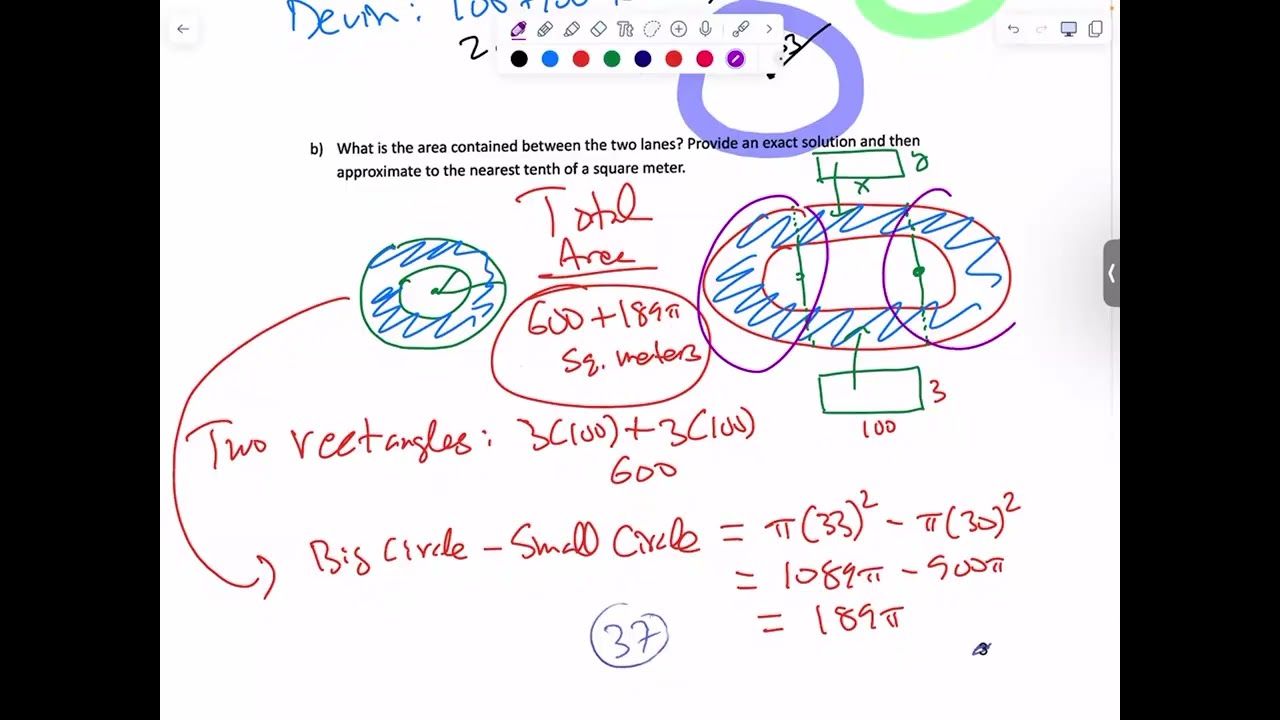 Devin: 100+100
2.
.33
b) What is the area contained between the two lanes? Provide an exact solution and then
approximate to the nearest tenth of a square meter.
x
Total
Area
600+189π
Sq. meters
3
100
Two rectangles: 3(100)+3(100)
600
Big Circle - Small Circle = π(33)² - π(30)²
= 1089π - 900π
= 189π
37